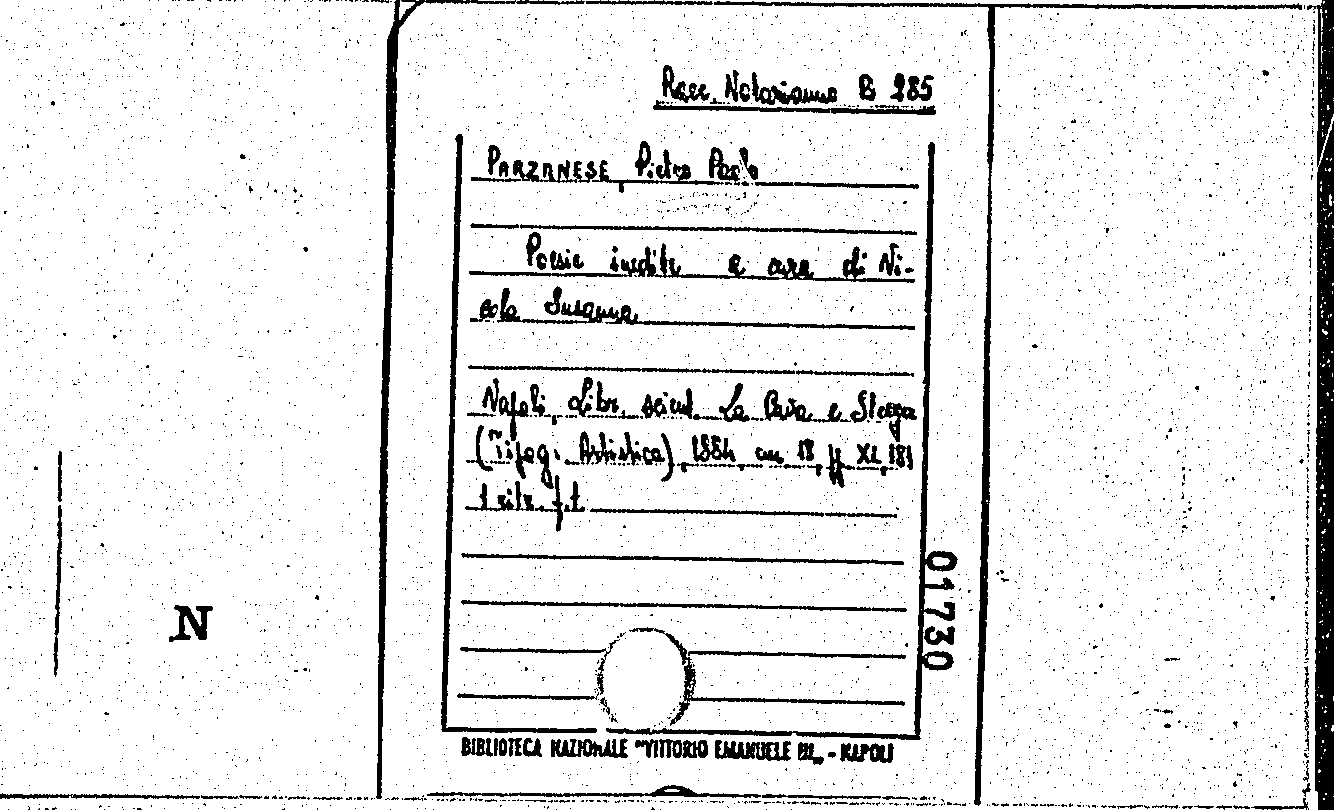 Racc. Notarianni B 285
PARZANESE, Pietro Paolo
Poesie inedite a cura di Ni-
cola Susanna
Napoli, Libr. scient. La Cava e Stega
(Tipog. Artistica), cm 18, pp XL, 181
1 ritr. f.t.
01730
N
BIBLIOTECA NAZIONALE "VITTORIO EMANUELE III„ - NAPOLI